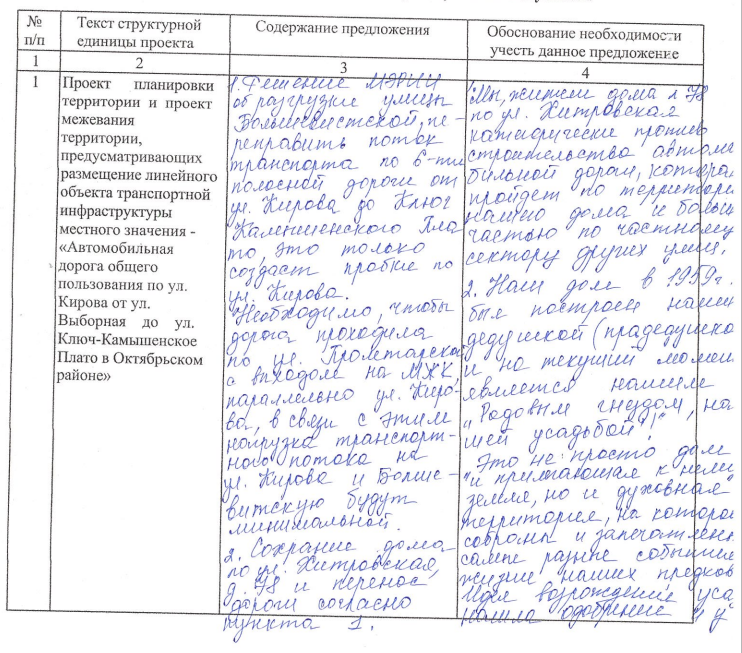 № п/п
Текст структурной единицы проекта
Содержание предложения
Обоснование необходимости учесть данное предложение
1
2
3
4
1
Проект планировки
территории и проект
межевания
территории,
предусматривающих
размещение линейного
объекта транспортной
инфраструктуры
местного значения -
«Автомобильная
дорога общего
пользования по ул.
Кирова от ул.
Выборная до ул.
Ключ-Камышенское
Плато в Октябрьском
районе»
1. Решение мэрии
об разгрузке улицы
Большевистской, пе-
реправить поток
транспорта по 6-ти
полосной дороге от
ул. Кирова до Ключ
Камышенского Пла-
то, это только
создаст пробки по
ул. Кирова.
Необходимо, чтобы
дорога проходила
по ул. Пролетарска
с выходом на МЖК,
параллельно ул. Киро-
ва, в связи с этим
нагрузка транспорт-
ного потока на
ул. Кирова и Больше-
витскую будут
минимальной.
2. Сохрание дома
по ул. Хитровская,
д. 78 и перенос
дороги согласно
пункта 1.
Мы, жители дома № 78
по ул. Хитровская
категорически против
строительства автомо
бильной дороги, котора
пройдет по территори
нашего дома и больш
частью по частному
сектору других улиц.
2. Наш дом в 1959г.
был построен нашим
дедушкой (прадедушко
и на текущий момен
является нашим
"Родовым гнездом, на
шей усадьбой"!
Это не просто дом
и прилегающая к нему
земля, но и духовная
территория, на которо
собраны и запечатлен
самые разные события
жизни наших предков
Идея возрождение уса
нашла одобрение и у